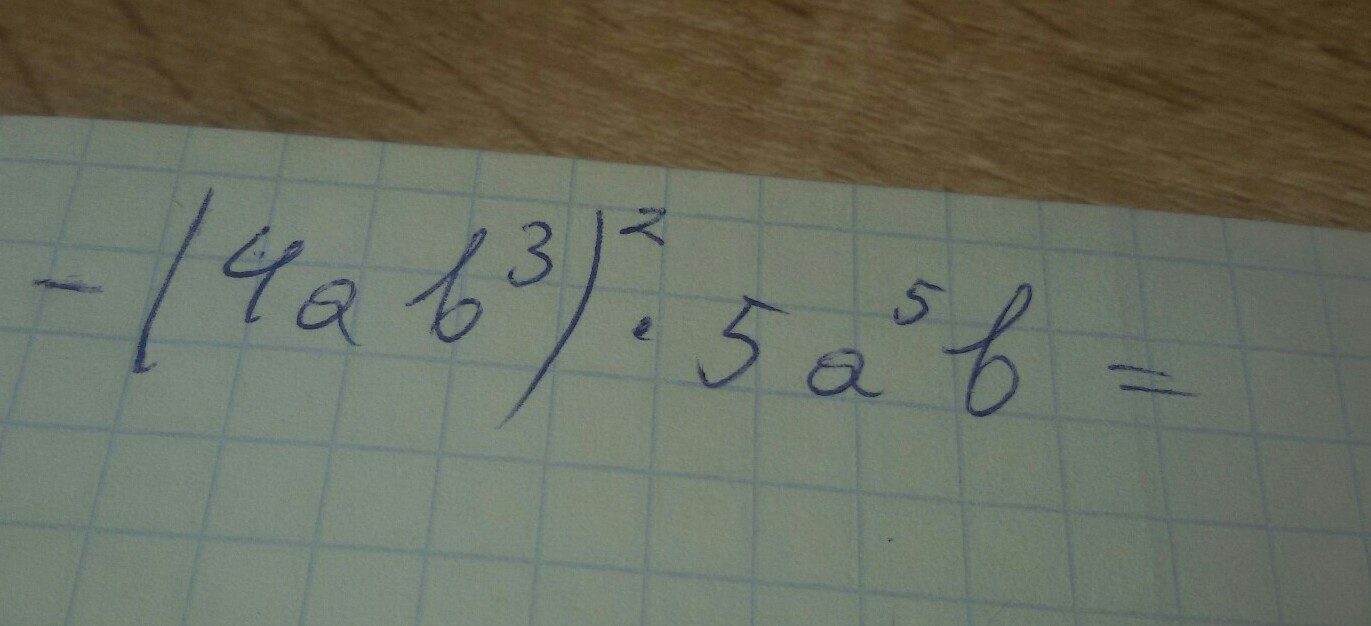 -(4ab³)² · 5a⁵b =